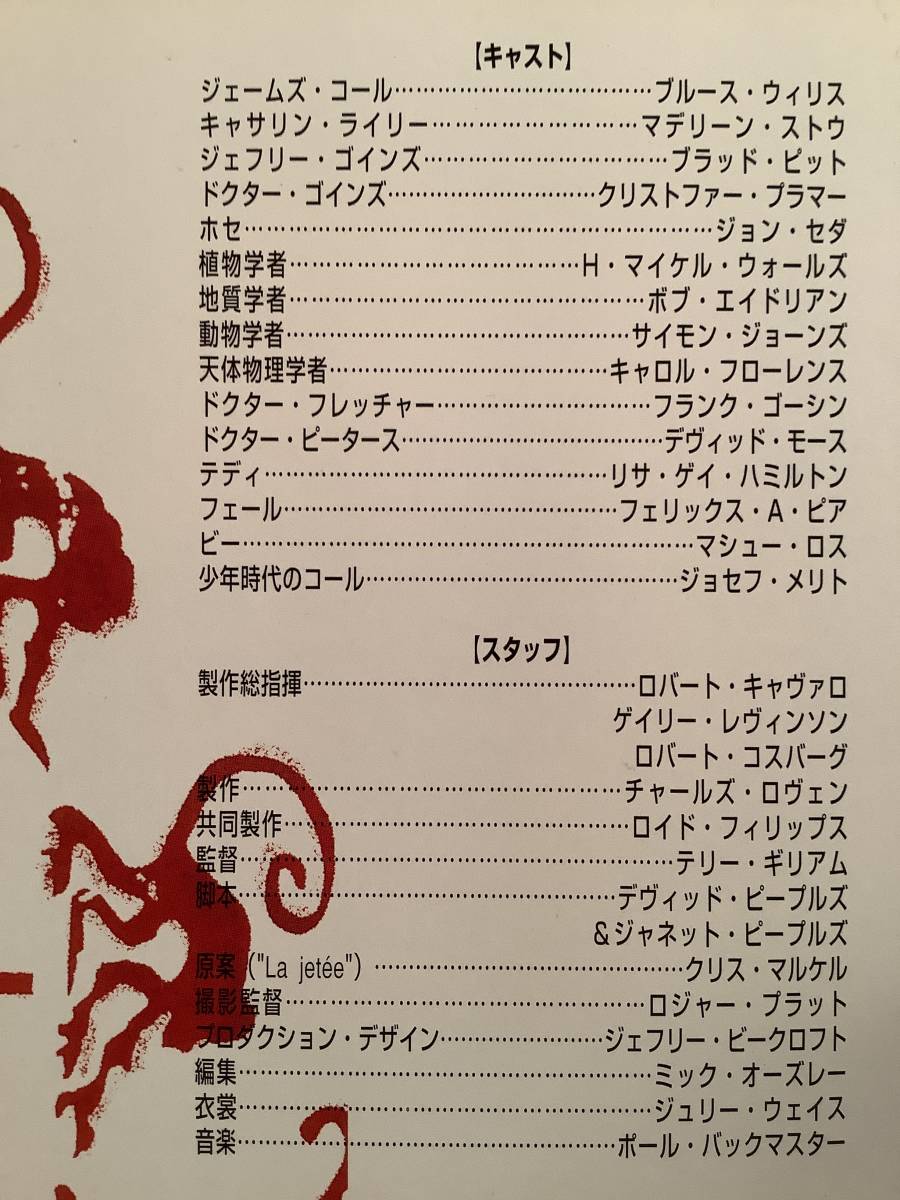 【キャスト】
ジェームズ・コール………………………………ブルース・ウィリス
キャサリン・ライリー………………………マデリーン・ストウ
ジェフリー・ゴインズ……………………………ブラッド・ピット
ドクター・ゴインズ………………………クリストファー・プラマー
ホセ………………………………………………………ジョン・セダ
植物学者…………………………………H・マイケル・ウォールズ
地質学者…………………………………………ボブ・エイドリアン
動物学者………………………………………サイモン・ジョーンズ
天体物理学者………………………………キャロル・フローレンス
ドクター・フレッチャー………………………フランク・ゴーシン
ドクター・ピータース………………………………デヴィッド・モース
テディ………………………………………リサ・ゲイ・ハミルトン
フェール………………………………………フェリックス・A・ピア
ビー……………………………………………………マシュー・ロス
少年時代のコール……………………………………ジョセフ・メリト
【スタッフ】
製作総指揮………………………………………ロバート・キャヴァロ
ゲイリー・レヴィンソン
ロバート・コスバーグ
製作……………………………………………チャールズ・ロヴェン
共同製作………………………………………ロイド・フィリップス
監督…………………………………………………テリー・ギリアム
脚本……………………………………………デヴィッド・ピープルズ
&ジャネット・ピープルズ
原案 ("La jetée") ……………………………………クリス・マルケル
撮影監督…………………………………………ロジャー・プラット
プロダクション・デザイン…………………ジェフリー・ビークロフト
編集………………………………………………ミック・オーズレー
衣裳………………………………………………ジュリー・ウェイス
音楽……………………………………………ポール・バックマスター